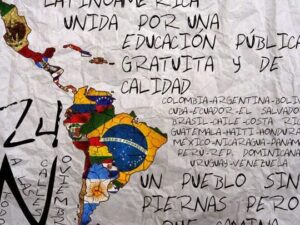 LATINOAMERICA
UNIDA POR UNA
EDUCACIÓN PÚBLICA
GRATUITA Y DE
CALIDAD
COLOMBIA-ARGENTINA-BOLI
CUBA-ECUADOR-EL SALVADO
BRASIL-CHILE-COSTA RIC
GUATEMALA-HAITI-HONDURA
MEXICO-NICARAGUA-PANAM
PERU-RED. DOMINICAN
URUGUAY-VENEZUELA
UN PUEBLO SIN
PIERNAS PERO
QUE CAMINA
24
N